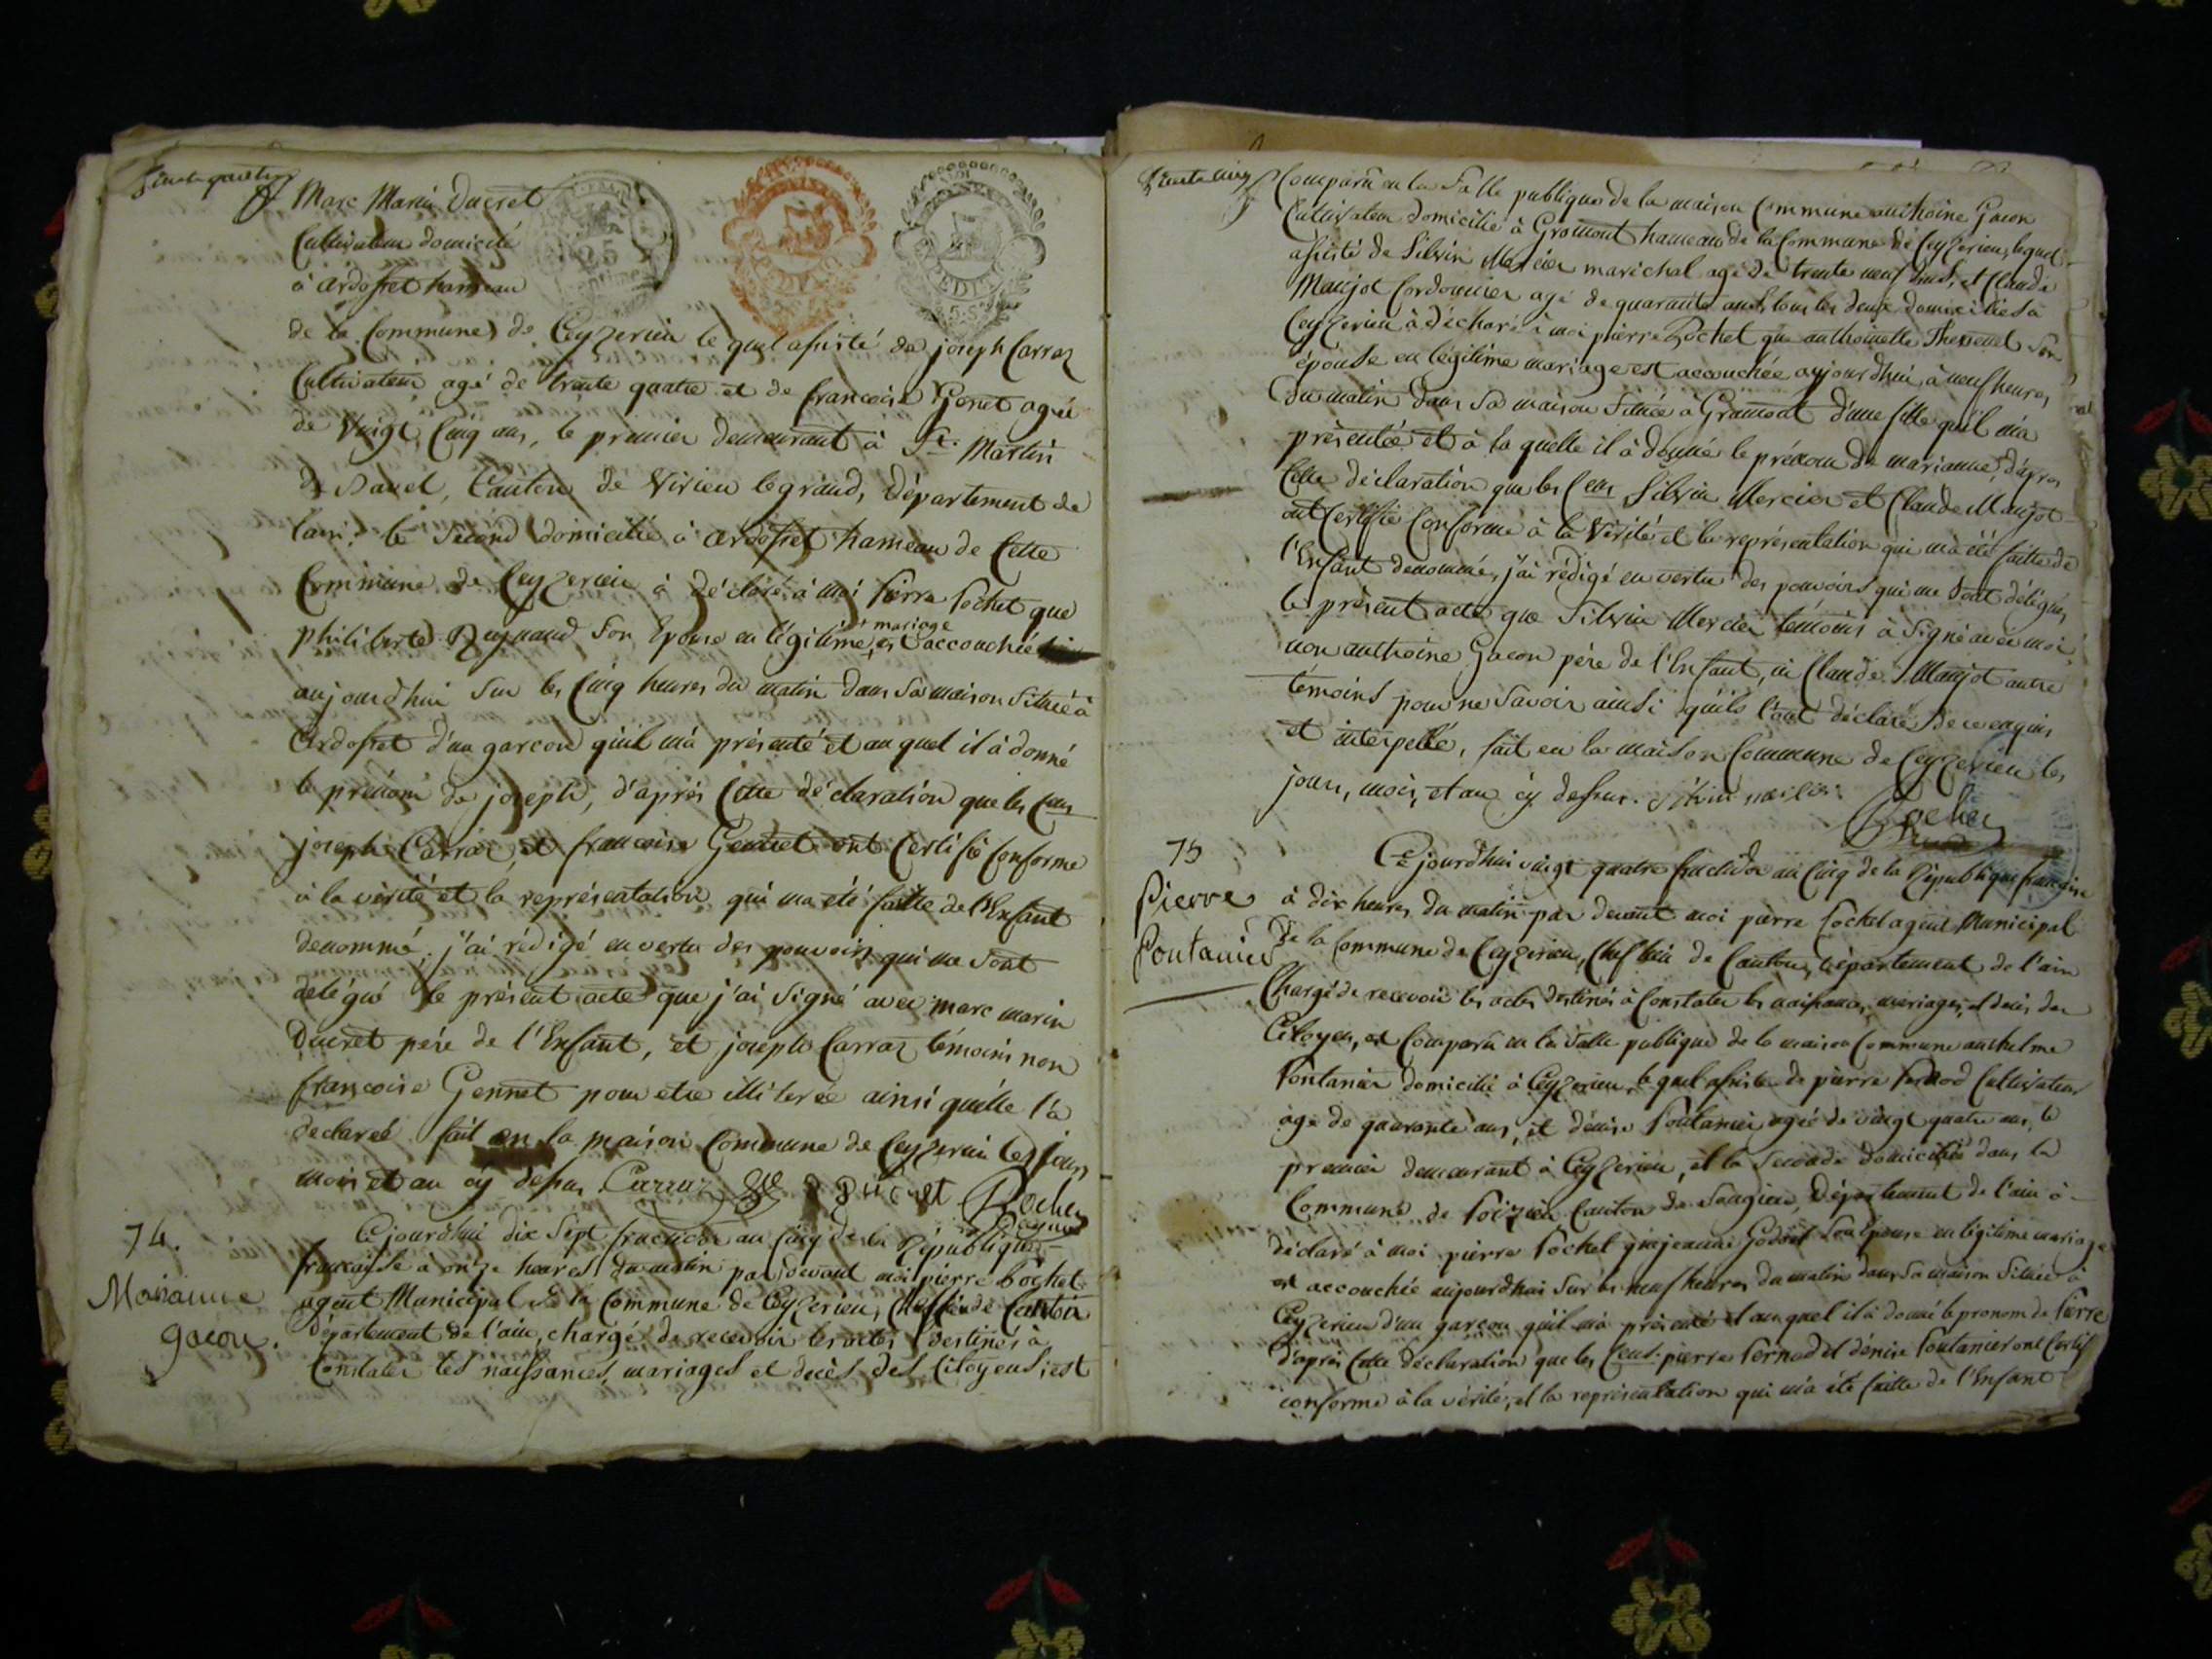 Marc Marin Ducret
Cultivateur domicilié
à ardosset hameau
de la Commune de Ceyzerieu le quel assisté de joseph Carraz
Cultivateur agé de trente quatre et de francoise Genet agée
de Vingt Cinq ans, le premier demeurant à St. Martin
de Bavel, Canton de Virieu le grand, Département de
lain; le Second domicilié à ardosset hameau de Cette
Commune de Ceyzerieu à déclaré à moi Pierre Rochet que
philiberte Reynaud Son Epouse en légitime mariage est accouchée
aujourdhui Sur les Cinq heures du matin dans Sa maison Située à
Ardosset d'un garcon quil m'a présenté et au quel il à donné
le prénom de joseph, d'après Cette déclaration que les Cens
joseph Carraz et francoise Gennet ont Certifié Conforme
à la vérité et la représentation qui ma été faitte de l'Enfant
denommé, j'ai rédigé en vertu des pouvoirs qui me Sont
délégué le présent acte que j'ai Signé avec marc marin
Ducret père de l'Enfant, et joseph Carraz témoins non
françoise Gennet pour etre illiterée ainsi quelle l'a
declaré fait en la maison Commune de Ceyzerieu les jour
mois et an cy dessus Carraz Ducret Rochet
74.
Marianne
gacon.
Cejourdhui dix Sept fructidor an Cinq de la République
francaise à onze heures du matin par devant moi pierre Rochet
agent Municipal de la Commune de Ceyzerieu, Chef lieu de Canton
Département de l'ain, chargé de recevoir les actes destinés à
Constater les naissances, mariages et décès des Citoyens, est
trente cinq
Comparû en la Salle publique de la maison Commune anthoine Gacon
Cultivateur domicilié à Gramont hameau de la Commune de Ceyzerieu, lequel
assisté de Silvin Mercier maréchal agé de trente neuf ans, et Claude
Maujot Cordonnier agé de quarante ans, tous les deux domiciliés à
Ceyzerieu à déclaré à moi pierre Rochet que anthoinette Thevenet Son
épouse en légitime mariage est accouchée aujourdhui à neuf heures
du matin dans Sa maison Située à Gramont d'une fille quil m'a
présentée et à la quelle il à donné le prénom de marianne, d'après
Cette déclaration que les Cens Silvin Mercier et Claude Maujot
ont Certifié Conforme à la Vérité et la représentation qui ma été faitte de
l'Enfant denommée, j'ai rédigé en vertu des pouvoirs qui me Sont délégués
le présent acte que Silvin Mercier témoins à Signé avec moi
non anthoine Gacon père de l'Enfant, ni Claude Maujot autre
témoins pour ne Savoir ainsi quils l'ont déclaré de ce enquis
et interpellé, fait en la maison Commune de Ceyzerieu les
jour, mois, et an cy dessus. Silvin mercier
Rochet
75
Pierre
fontanier
Cejourdhui vingt quatre fructidor an Cinq de la République française
à dix heures du matin par devant moi pierre Rochet agent Municipal
de la Commune de Ceyzerieu, Chef lieu de Canton, Département de l'ain
Chargé de recevoir les actes destinés à Constater les naissances, mariages, et décès des
Citoyens, est Comparu en la Salle publique de la maison Commune anthelme
fontanier domicilié à Ceyzerieu, le quel assisté de pierre Pernod Cultivateur
agé de quarante ans, et dénise fontanier agée de vingt quatre ans, le
premier demeurant à Ceyzerieu, et la Seconde domiciliée dans la
Commune de Canton de Département de l'ain à
déclaré à moi pierre Rochet que jeanne Godet Son Epouse en légitime mariage
est accouchée aujourdhui Sur les neuf heures du matin dans Sa maison Située à
Ceyzerieu d'un garcon quil m'a présenté et au quel il à donné le pronom de Pierre
d'après Cette déclaration que les Cens pierre Pernod et dénise fontanier ont Certif
conforme à la vérité, et la représentation qui m'a été faitte de l'Enfant